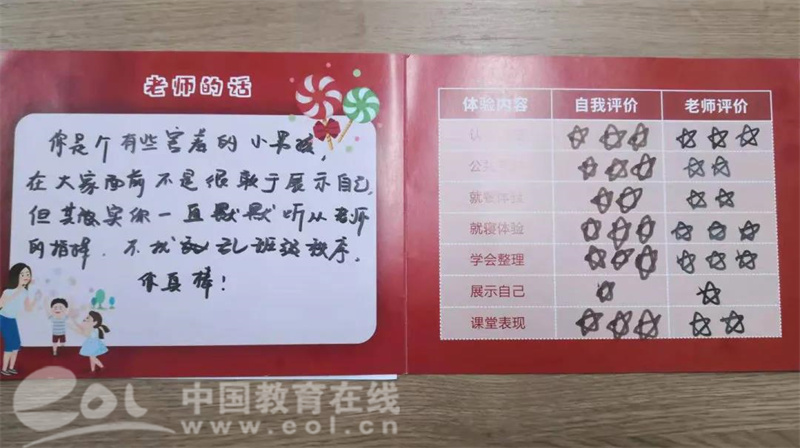 老师的话
你是个有些害羞的小男孩,
在大家面前不是很敢于展示自己,
但其实你一直默默听从老师
的指挥.不扰乱班级秩序,
你真棒!
体验内容 自我评价 老师评价
就餐体验
就寝体验
学会整理
展示自己
课堂表现
eol 中国教育在线
www.eol.cn